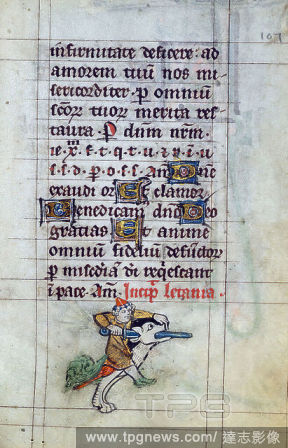 107
infirmitate deficere: ad
amorem tuum nos mi
sericorditer. p omnium
scorum tuorum merita res
taura. P dum nrm.
ie. x. s. t. q. t. u. i. u
s. s. d. p. o. s. s. Am. Dne
exaudi or. Et clamor.
Benedicam dno Deo
gratias Et anime
omnium fidelium defunctor
p misediam di reqescant
i pace. Am. Incip letania.
TPG
www.tpgnews.com / 達志影像